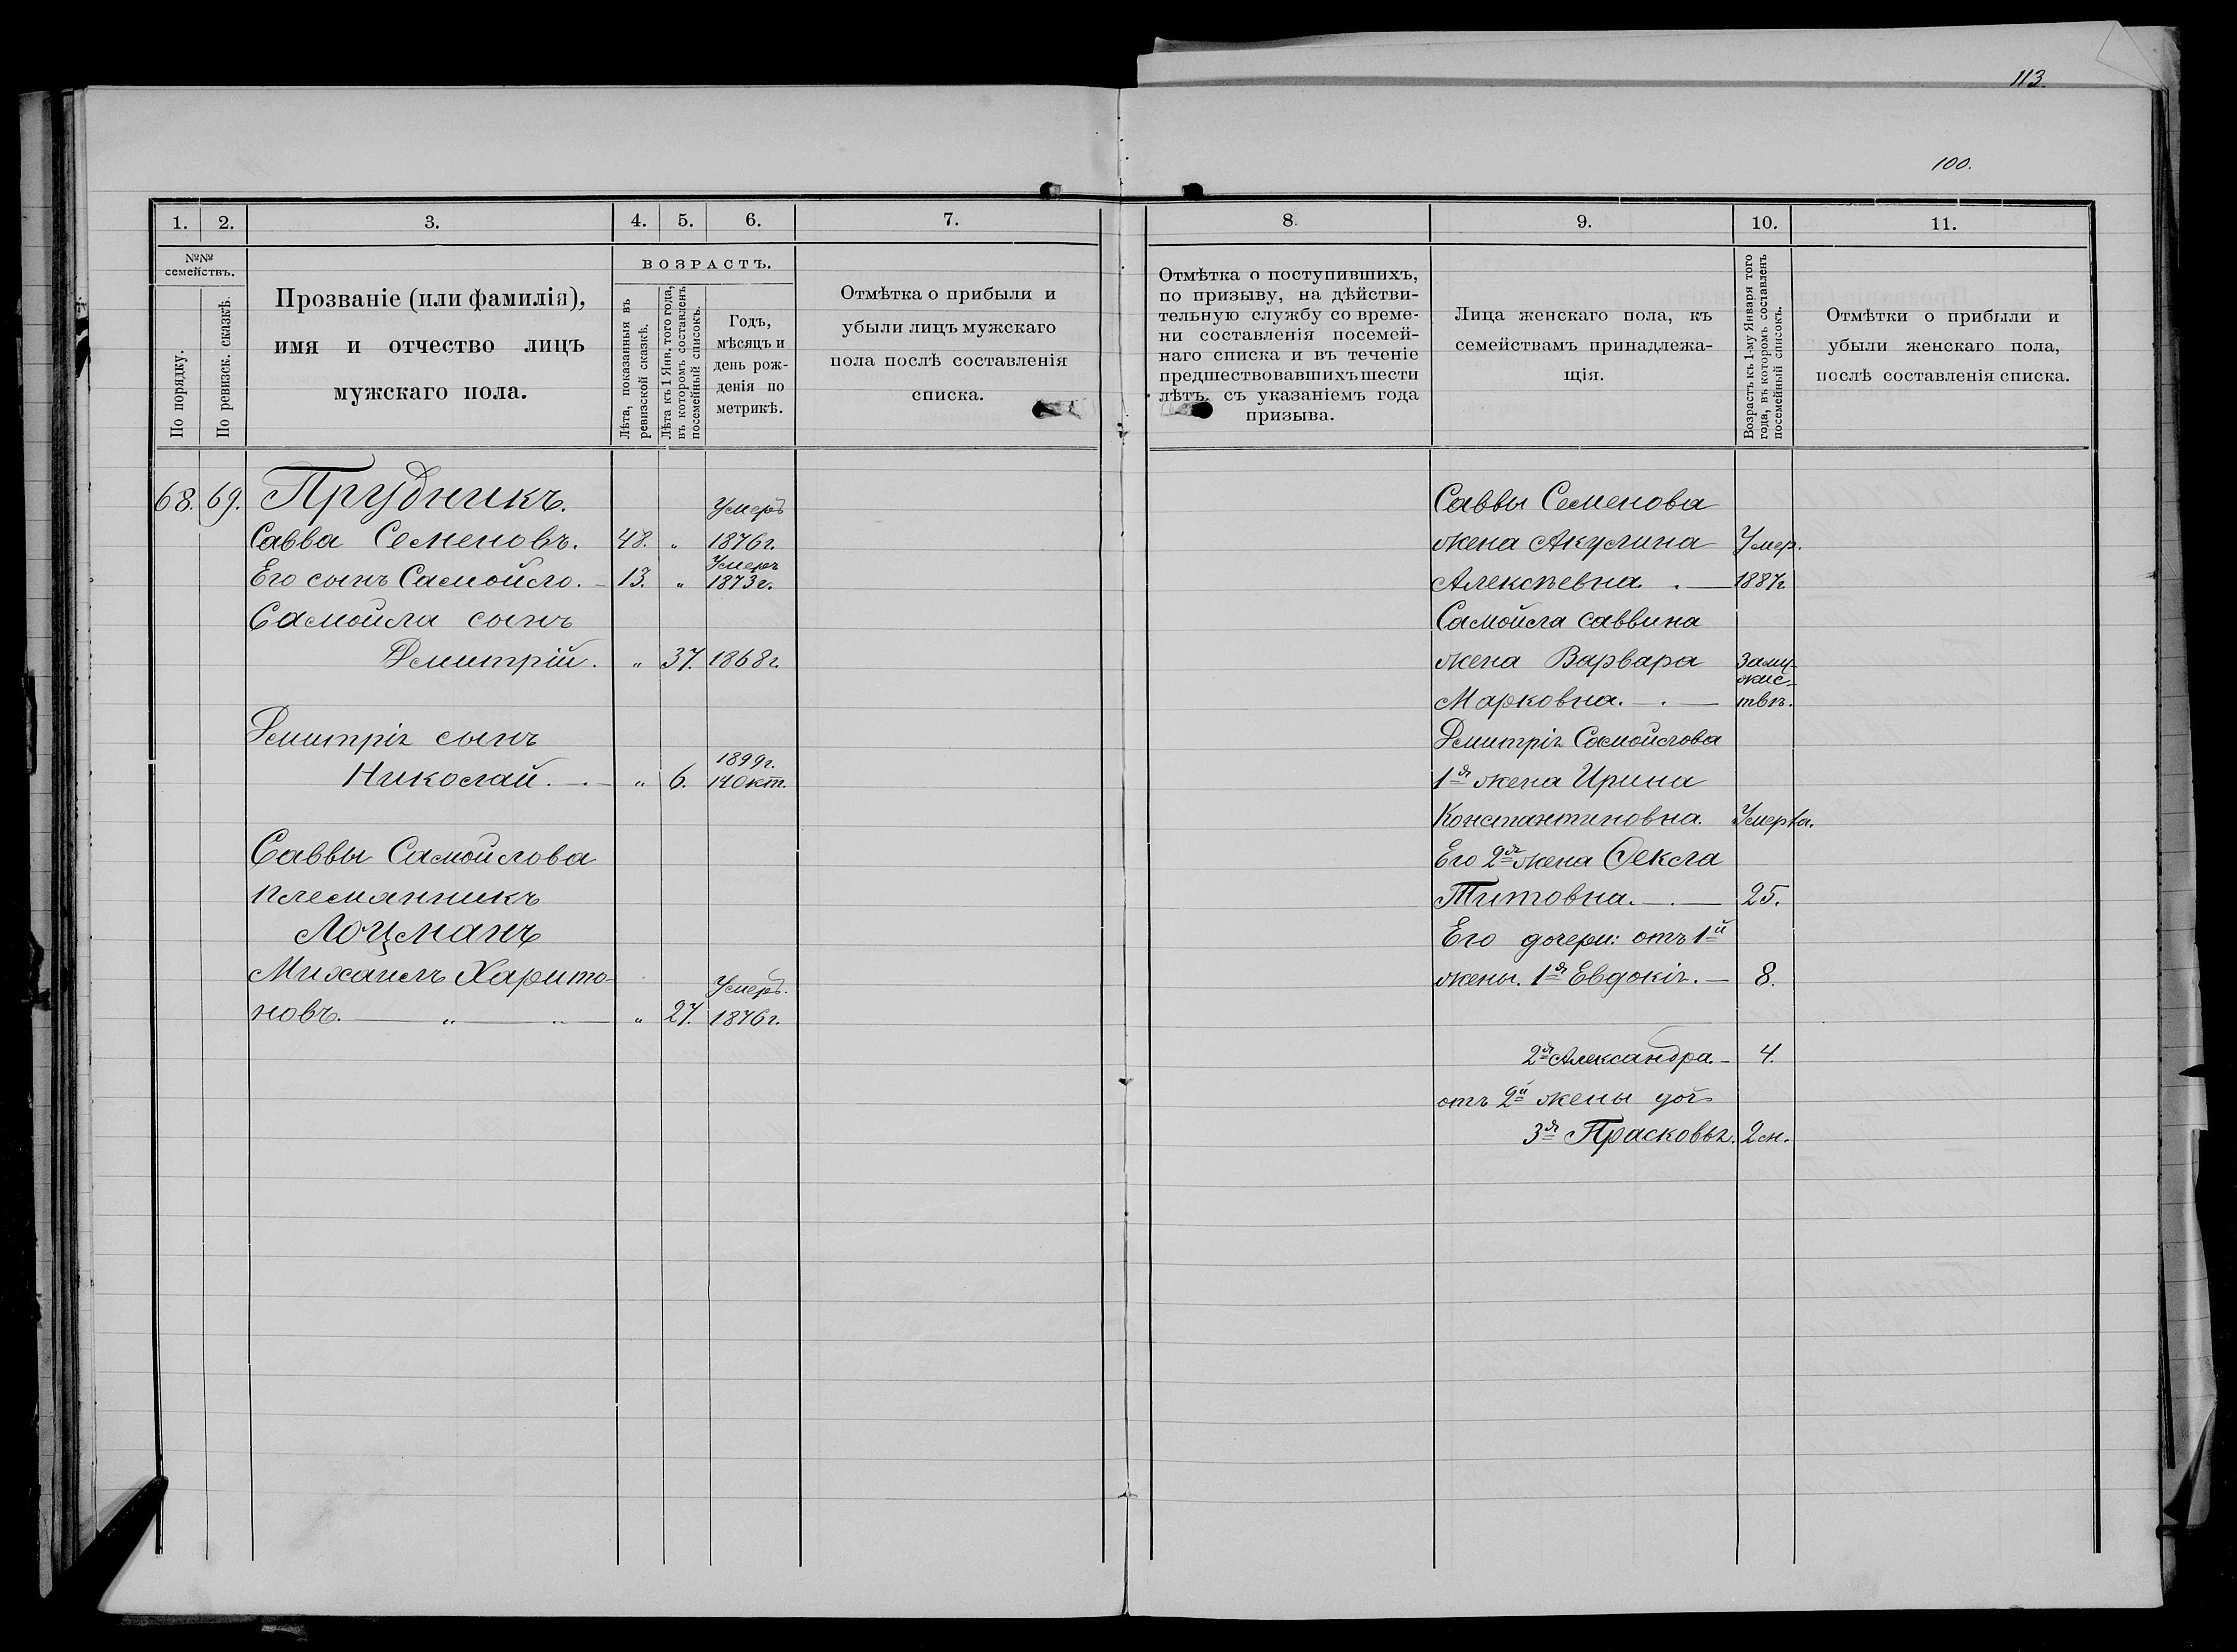 113.
100.
1. 2. 3. 4. 5. 6. 7.
№№ семействъ.
По порядку.
По ревизск. сказкѣ.
Прозваніе (или фамилія),
имя и отчество лицъ
мужскаго пола.
ВОЗРАСТЪ.
Лѣта, показанныя въ
ревизской сказкѣ.
Лѣта къ 1 Янв. того года,
въ которомъ составленъ
посемейный списокъ.
Годъ,
мѣсяцъ и
день рож-
денія по
метрикѣ.
Отмѣтка о прибыли и
убыли лицъ мужскаго
пола послѣ составленія
списка.
68. 69. Прудникъ. Умеръ
Савва Семеновъ. 48. „ 1876г.
Умеръ
Его сынъ Самойло. 13. „ 1873г.
Самойла сынъ
Дмитрій. „ 37. 1868г.
Дмитрія сынъ
1899г.
Николай. „ 6. 14 Окт.
Саввы Самойлова
племянникъ
Лоцманъ
Михаилъ Харито- Умеръ.
новъ. „ 27. 1876г.
8. 9. 10. 11.
Отмѣтка о поступившихъ,
по призыву, на дѣйстви-
тельную службу со време-
ни составленія посемей-
наго списка и въ теченіе
предшествовавшихъ шести
лѣтъ, съ указаніемъ года
призыва.
Лица женскаго пола, къ
семействамъ принадлежа-
щія.
Возрастъ къ 1-му Января того
года, въ которомъ составленъ
посемейный списокъ.
Отмѣтки о прибыли и
убыли женскаго пола,
послѣ составленія списка.
Саввы Семенова
жена Акулина Умер.
Алексѣевна. 1887г
Самойла Саввина
жена Варвара Заму-
жес-
Марковна. твѣ.
Дмитрія Самойлова
1я жена Ирина
Константиновна. Умерла.
Его 2я жена Ѳекла
Титовна. 25.
Его дочери: отъ 1й
жены. 1я Евдокія. 8.
2я Александра. 4.
отъ 2й жены доч.
3я Прасковья. 2 м.